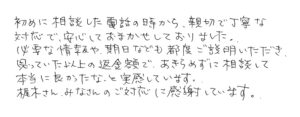 初めに相談した電話の時から、親切で丁寧な
対応で、安心しておまかせしておりました。
必要な情報や、期日なども都度ご説明いただき、
思っていた以上の返金額で、あきらめずに相談して
本当に良かったな、と実感しています。
梶木さん、みなさんのご対応に感謝しています。